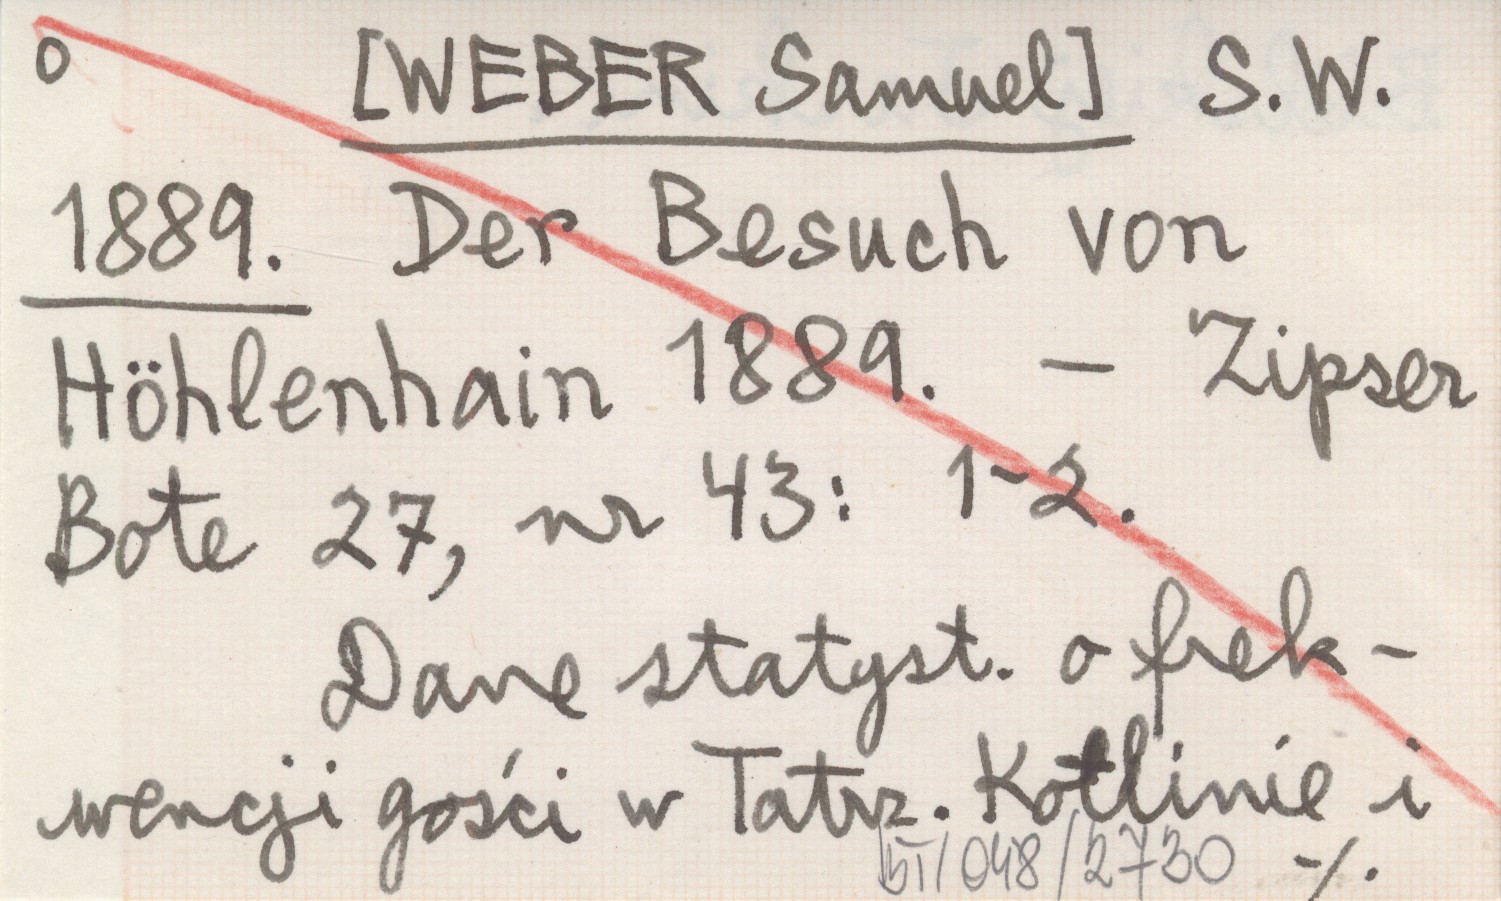 o [WEBER Samuel] S.W.
1889. Der Besuch von
Höhlenhain 1889. – Zipser
Bote 27, nr 43: 1-2.
Dane statyst. o frek-
wencji gości w Tatrz. Kotlinie i
BT/048/2730 -/.